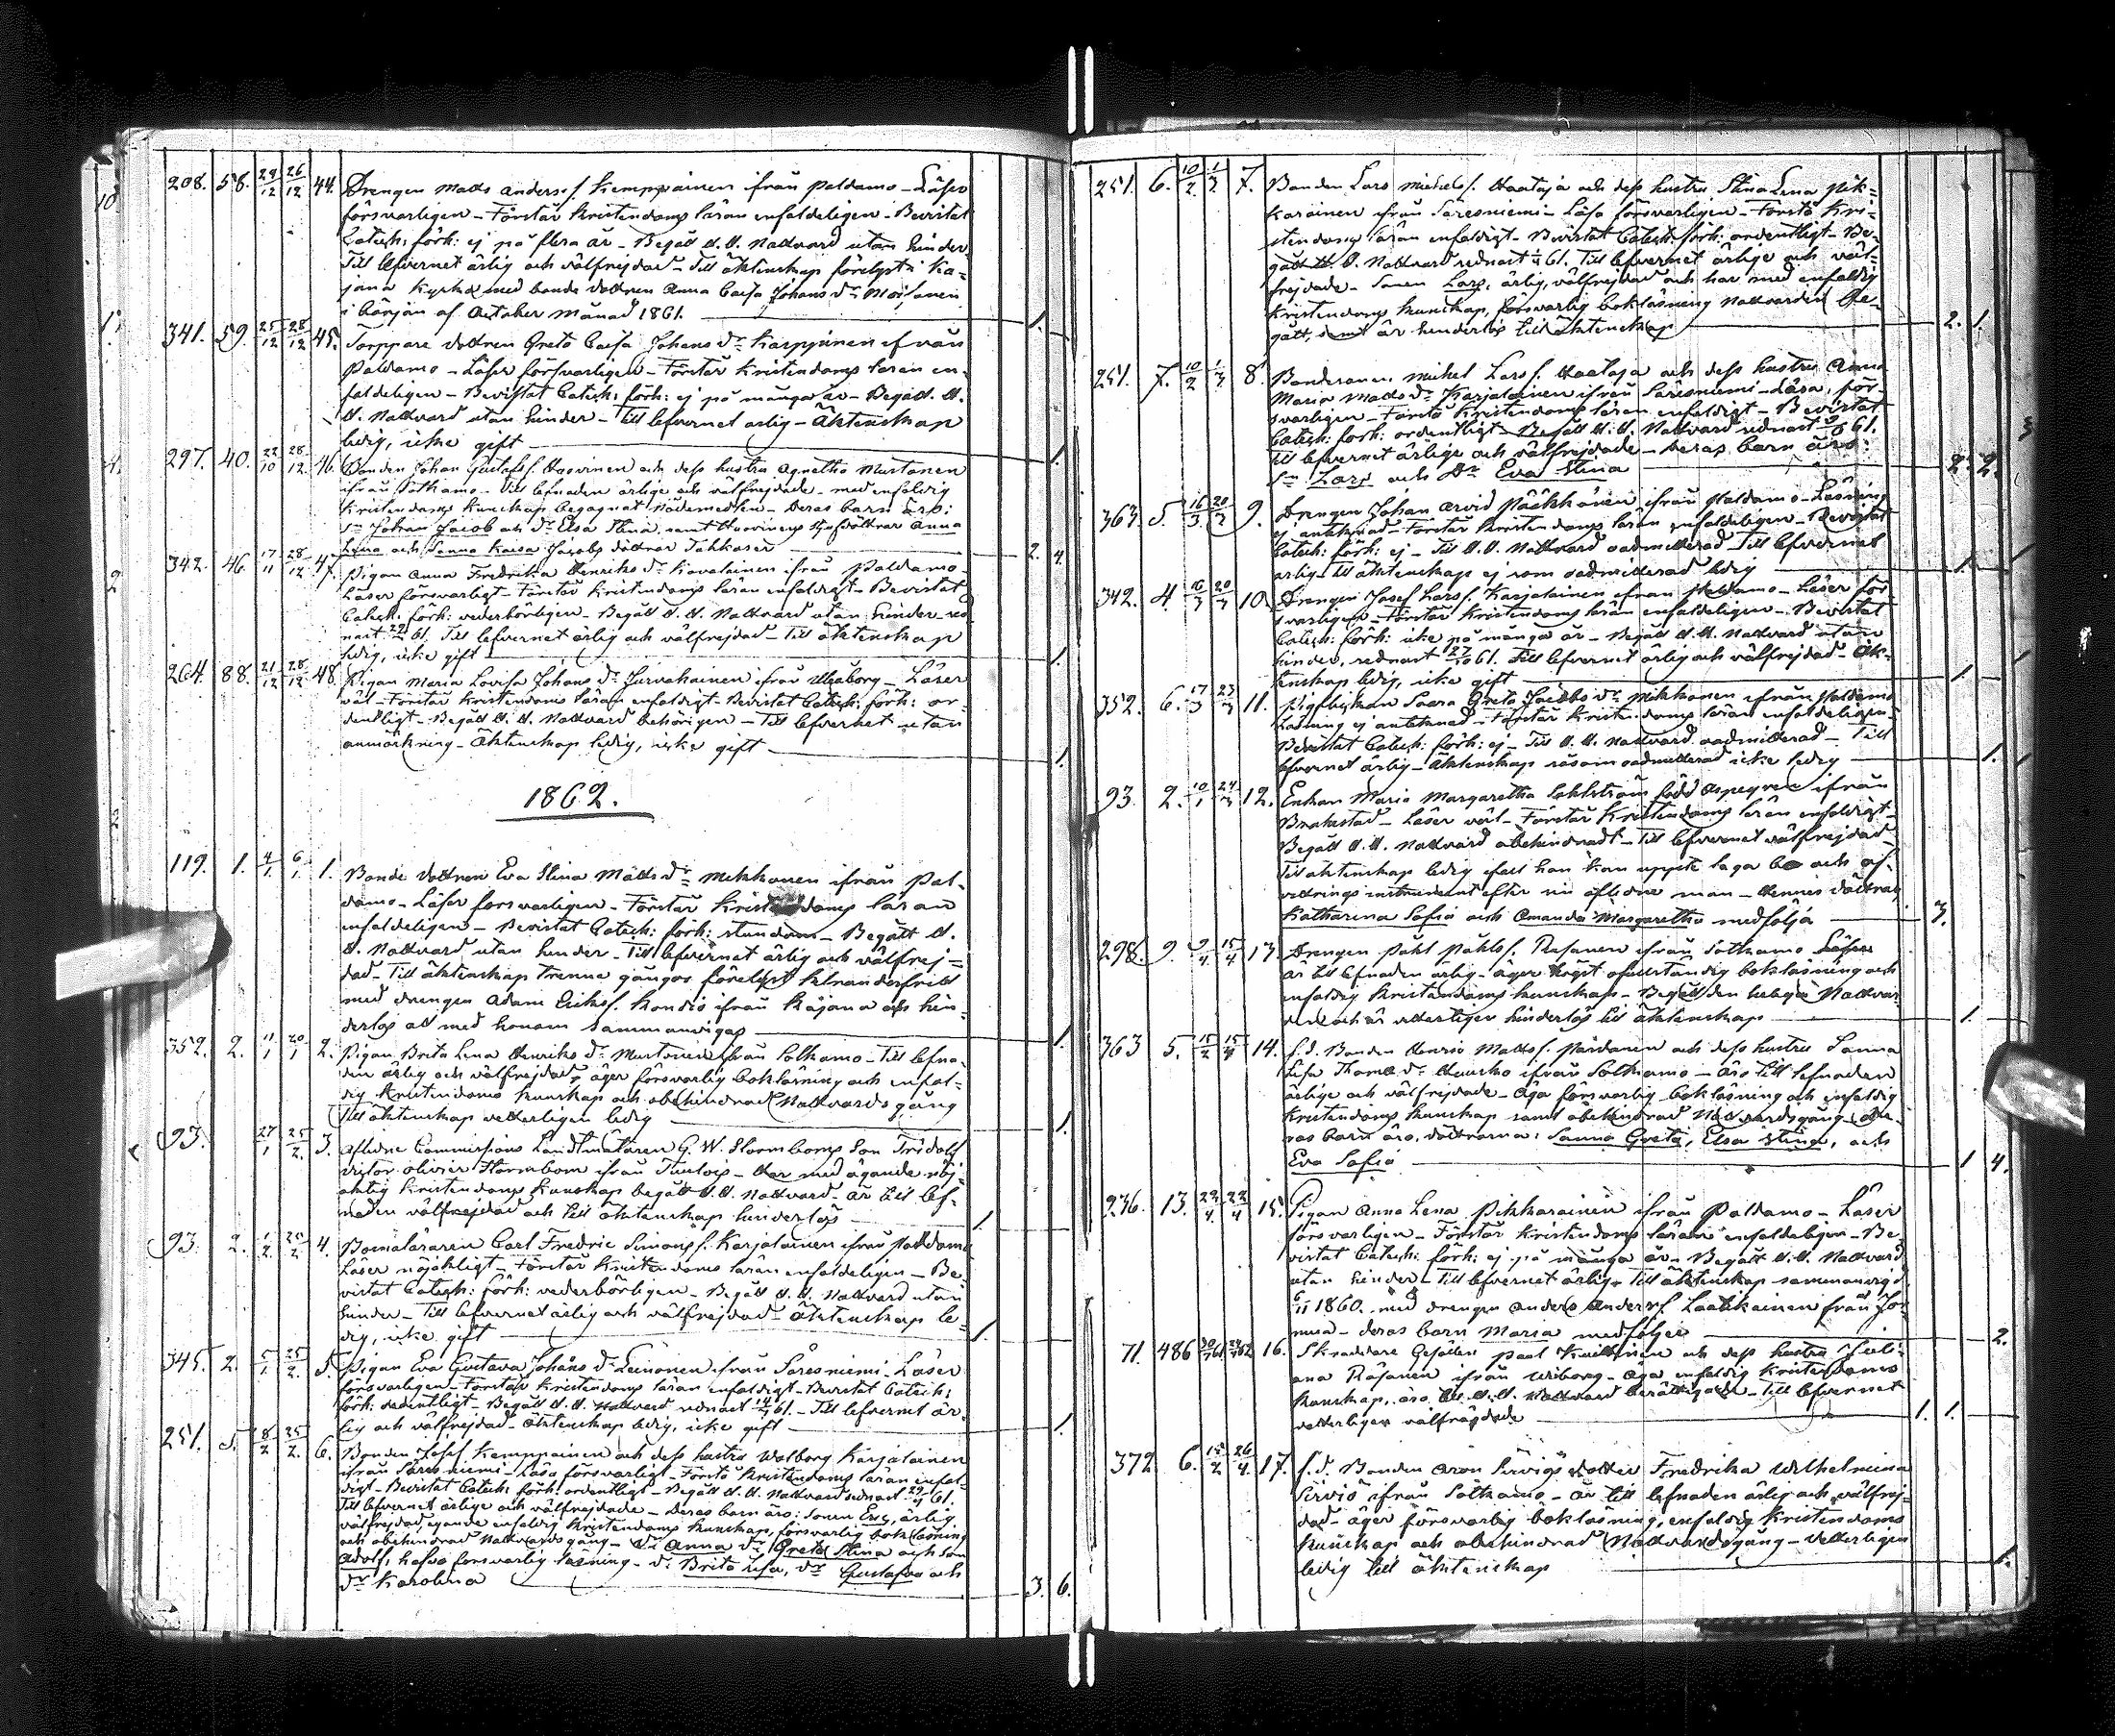 208. 58. 29/12 26/12 44. Drengen Matts Anders s. Kemppainen ifrån Paldamo - Läser
försvarligen - Förstår Kristendoms läran enfaldeligen - Bevistat
Catech: förh: ej på flera år - Begått H. H. Nattvard utan hinder
Till lefvernet ärlig och välfrejdad - Till äktenskap förelyst i Ka-
jana Kyrka med bonde dottren Anna Caisa Johans dr
i början af October månad 1861. 1.
341. 59. 25/12 28/12 45. Torppare dottren Greta Caisa Johans dr Karppinen ifrån
Paldamo - Läser försvarligen - Förstår Kristendoms läran en-
faldeligen - Bevistat Catech: förh: ej på många år - Begått H.
H. Nattvard utan hinder - Till lefvernet ärlig - Äktenskap
ledig, icke gift 1.
297. 40. 22/10 28/12 46. Bonden Johan Gustafs s. Huovinen och dess hustru Agnetha Mustonen
ifrån Sotkamo - Till lefnaden ärlige och välfrejdade - med enfaldig
Kristendoms kunskap begagnat Nådemedlen - Deras barn äro:
sn Johan Jacob och dr Elsa Stina, samt Huovinens styfdöttrar Anna
Lena och Sanna Kaisa Jacobs döttrar Tahkoser 2. 4.
342. 46. 17/11 28/12 47. Pigan Anna Fredrika Henriks dr Kovalainen ifrån Paldamo
Läser försvarligt - Förstår Kristendoms läran enfaldigt - Bevistat
Catech: förh: vederbörligen - Begått H. H. Nattvard utan hinder sed-
nast 61. Till lefvernet ärlig och välfrejdad - Till äktenskap
ledig, icke gift 1.
264. 88. 21/12 28/12 48. Pigan Maria Lovisa Johans dr Jurvakainen ifrån Uleåborg - Läser
väl - Förstår Kristendoms läran enfaldigt - Bevistat Catech: förh: or-
dentligt - Begått H. H. Nattvard behörigen - Till lefvernet utan
anmärkning - Äktenskap ledig, icke gift 1.
1862.
119. 1. 4/1 6/1 1. Bonde dottren Eva Stina Matts dr Mikkonen ifrån Pal-
damo - Läser försvarligen - Förstår Kristendoms läran
enfaldeligen - Bevistat Catech: förh: stundom - Begått H.
H. Nattvard utan hinder - Till lefvernet ärlig och välfrej-
dad - Till äktenskap trenne gångor förelyst klanderfritt
med drengen Adam Eriks s. Kondio ifrån Kajana och hin-
derlös att med honom sammanvigas 1.
352. 2. 11/1 20/1 2. Pigan Brita Lena Henriks dr Mustonen ifrån Sotkamo - Till lefna-
den ärlig och välfrejdad, äger försvarlig bokläsning och enfal-
dig Kristendoms kunskap och obehindrad Nattvards gång
Till äktenskap vetterligen ledig 1.
93. 27/1 25/2 3. Aflidne Commissions Landtmätaren G. W. Stormboms Son Fridolf
Viktor Olivier Stormbom ifrån Tuulois - Har med ägande nöj-
aktig Kristendoms kunskap begått H. H. Nattvard - Är till lef-
naden välfrejdad och till äktenskap hinderlös 1.
93. 2. 1/2 25/2 4. Barnaläraren Carl Fredric Simons s. Karjalainen ifrån Paldamo
Läser nöjaktigt - Förstår Kristendoms läran enfaldeligen - Be-
vistat Catech: förh: vederbörligen - Begått H. H. Nattvard utan
hinder - Till lefvernet ärlig och välfrejdad - Äktenskap le-
dig, icke gift 1.
345. 2. 5/1 25/2 5. Pigan Eva Gustava Johans dr Leinonen ifrån Säresniemi - Läser
försvarligen - Förstår Kristendoms läran enfaldigt - Bevistat Catech:
förh: ordentligt - Begått H. H. Nattvard sednast 61. - Till lefvernet är-
lig och välfrejdad - Äktenskap ledig, icke gift 1.
251. 5. 8/2 25/2 6. Bonden Josef Kemppainen och dess hustru Walborg Karjalainen
ifrån Säresniemi - Läsa försvarligt - Förstå Kristendoms läran enfal-
digt - Bevistat Catech: förh: ordentligt - Begått H. H. Nattvard sednast 61.
Till lefvernet ärlige och välfrejdade - Deras barn äro: Sonen Eric, ärlig
välfrejdad egande enfaldig Kristendoms kunskap, försvarlig bokläsning
och obehindrad Nattvards gång - dr Anna dr Greta Stina och son
Adolf, hafva försvarlig läsning - dr Brita Lisa, dr Gustafva och
dr Karolina 3. 6.
251. 6. 10/2 1/3 7. Bonden Lars Michels s. Haataja och dess hustru Stina Lena Pik-
karainen ifrån Säresniemi - Läsa försvarligen - Förstå Kri-
stendoms läran enfaldigt - Bevistat Catech: förh: ordentligt - Be-
gått H. H. Nattvard sednast 61. Till lefvernet ärlige och väl-
frejdade - Sonen Lars, ärlig, välfrejdad och har med enfaldig
Kristendoms kunskap, försvarlig bokläsning Nattvarden be-
gått, samt är hinderlös till äktenskap 2. 1.
251. 7. 10/2 1/3 8. Bondesonen Michel Lars s. Haataja och dess hustru Anna
Maria Matts dr Karjalainen ifrån Säresniemi - Läsa, för-
svarligen - Förstå Kristendoms läran enfaldigt - Bevistat
Catech: förh: ordentligt - Begått H. H. Nattvard sednast 61.
Till lefvernet ärlige och välfrejdade - Deras barn äro:
Sn Lars och Dr Eva Stina 2. 2.
363. 5. 16/3 20/3 9. Drengen Johan Arvid Pääkkönen ifrån Paldamo - Läsning
ej antecknad - Förstår Kristendoms läran enfaldeligen - Bevistat
Catech: förh: ej - Till H. H. Nattvard oadmitterad - Till lefvernet
ärlig - Till äktenskap ej som oadmitterad ledig 1.
342. 4. 16/3 20/3 10. Drengen Josef Lars s. Karjalainen ifrån Paldamo - Läser för-
svarligen - Förstår Kristendoms läran enfaldeligen - Bevistat
Catech: förh: icke på många år - Begått H. H. Nattvard utan
hinder, sednast 27/10 61. Till lefvernet ärlig och välfrejdad - Äk-
tenskap ledig, icke gift 1.
352. 6. 17/3 23/3 11. Pigflickan Saara Greta Jacobs dr Mikkonen ifrån Paldamo
Läsning ej antecknad - Förstår Kristendoms läran enfaldeligen -
Bevistat Catech: förh: ej - Till H. H. Nattvard oadmitterad - Till
lefvernet ärlig - Äktenskap såsom oadmitterad icke ledig 1.
93. 2. 10/1 24/3 12. Enkan Maria Margaretha Sahlström född Aspegren ifrån
Brahestad - Läser väl - Förstår Kristendoms läran enfaldigt -
Begått H. H. Nattvard obehindradt - Till lefvernet välfrejdad
Till äktenskap ledig ifall hon kan uppte laga bo och af-
vittrings instrument efter sin aflidne man - Hennes döttrar,
Katharina Sofia och Amanda Margaretha medfölja 3.
298. 9. 9/4 15/4 13. Drengen Påhl Påhls s. Räsänen ifrån Sotkamo Läser
är till lefnaden ärlig - äger högst ofullständig bokläsning och
enfaldig Kristendoms kunskap - Begått den heliga Nattvar-
den och är vetterligen hinderlös till äktenskap 1.
363 5. 15/2 15/4 14. f. d. Bonden Henric Matts s. Määttänen och dess hustru Sanna
Lisa Thomæ dr Heusko ifrån Sotkamo - Äro till lefnaden
ärlige och välfrejdade - Äga försvarlig bokläsning och enfaldig
Kristendoms kunskap samt obehindrad Nattvardsgång - De-
ras barn äro, döttrarna: Sanna Greta, Elsa Stina, och
Eva Sofia 1 4.
236. 13. 22/4 22/4 15. Pigan Anna Lena Pikkarainen ifrån Paldamo - Läser
försvarligen - Förstår Kristendoms läran enfaldeligen - Be-
vistat Catech: förh: ej på många år - Begått H. H. Nattvard
utan hinder - Till lefvernet ärlig - Till äktenskap sammanvigd
6/11 1860. med drengen Anders Anders s. Laatikainen från Jor-
mua - deras barn Maria medföljer 2.
71. 486 16. Skräddare Gesällen Paul Keillinen och dess hustru Juli-
ana Räsänen ifrån Wiborg - Äga enfaldig Kristendoms
kunskap, äro till H. H. Nattvard berättigade - Till lefvernet
vetterligen välfrejdade 1. 1.
372 6. 15/2 26/4 17. f. d. Bonden Aron Serviös dotter Fredrika Wilhelmina
Serviö ifrån Sotkamo - Är till lefnaden ärlig och välfrej-
dad - äger försvarlig bokläsning, enfaldig Kristendoms
kunskap och obehindrad Nattvardsgång - Vetterligen
ledig till äktenskap 1.